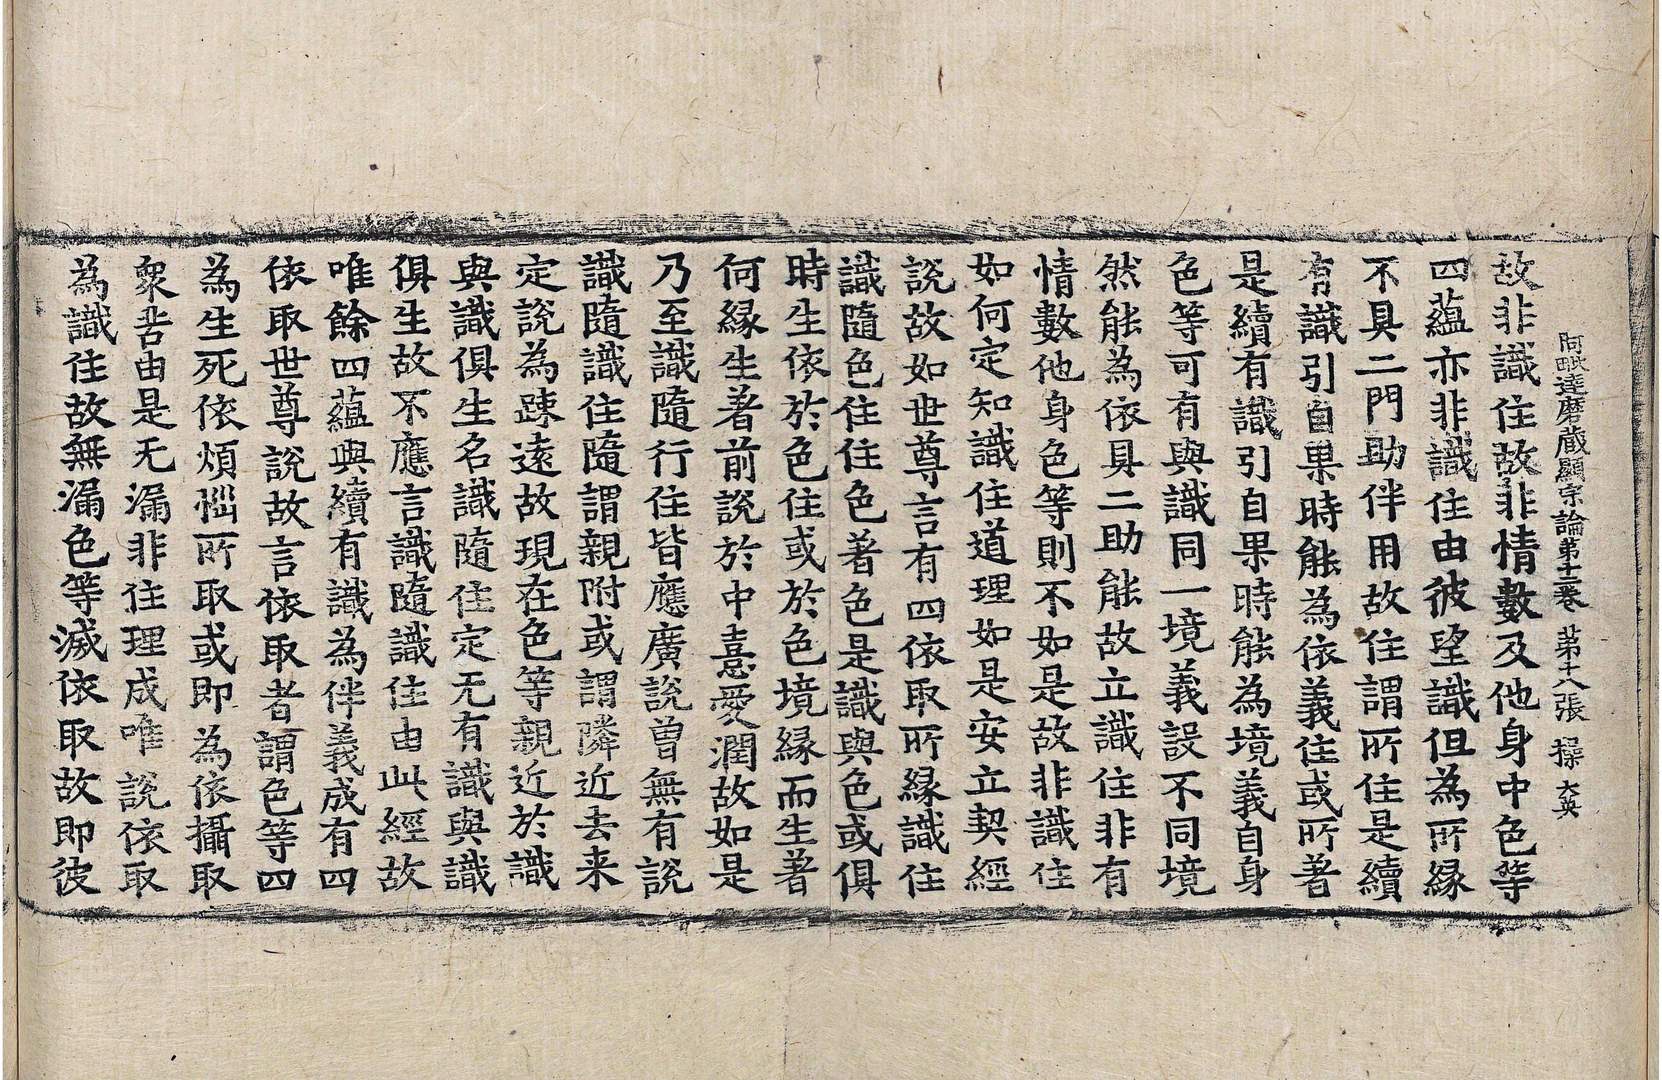 阿毗達磨藏顯宗論第十二卷 第十八張 操 大英
故非識住故非情數及他身中色等
四蘊亦非識住由彼望識但為所緣
不具二門助伴用故住謂所住是續
有識引自果時能為依義住或所著
是續有識引自果時能為境義自身
色等可有與識同一境義設不同境
然能為依具二助能故立識住非有
情數他身色等則不如是故非識住
如何定知識住道理如是安立契經
說故如世尊言有四依取所緣識住
識隨色住住色著色是識與色或俱
時生依於色住或於色境緣而生著
何緣生著前說於中憙愛潤故如是
乃至識隨行住皆應廣說曾無有說
識隨識住隨謂親附或謂隣近去来
定說為踈遠故現在色等親近於識
與識俱生名識隨住定无有識與識
俱生故不應言識隨識住由此經故
唯餘四蘊與續有識為伴義成有四
依取世尊說故言依取者謂色等四
為生死依煩惱所取或即為依攝取
衆苦由是无漏非住理成唯說依取
為識住故無漏色等滅依取故即彼